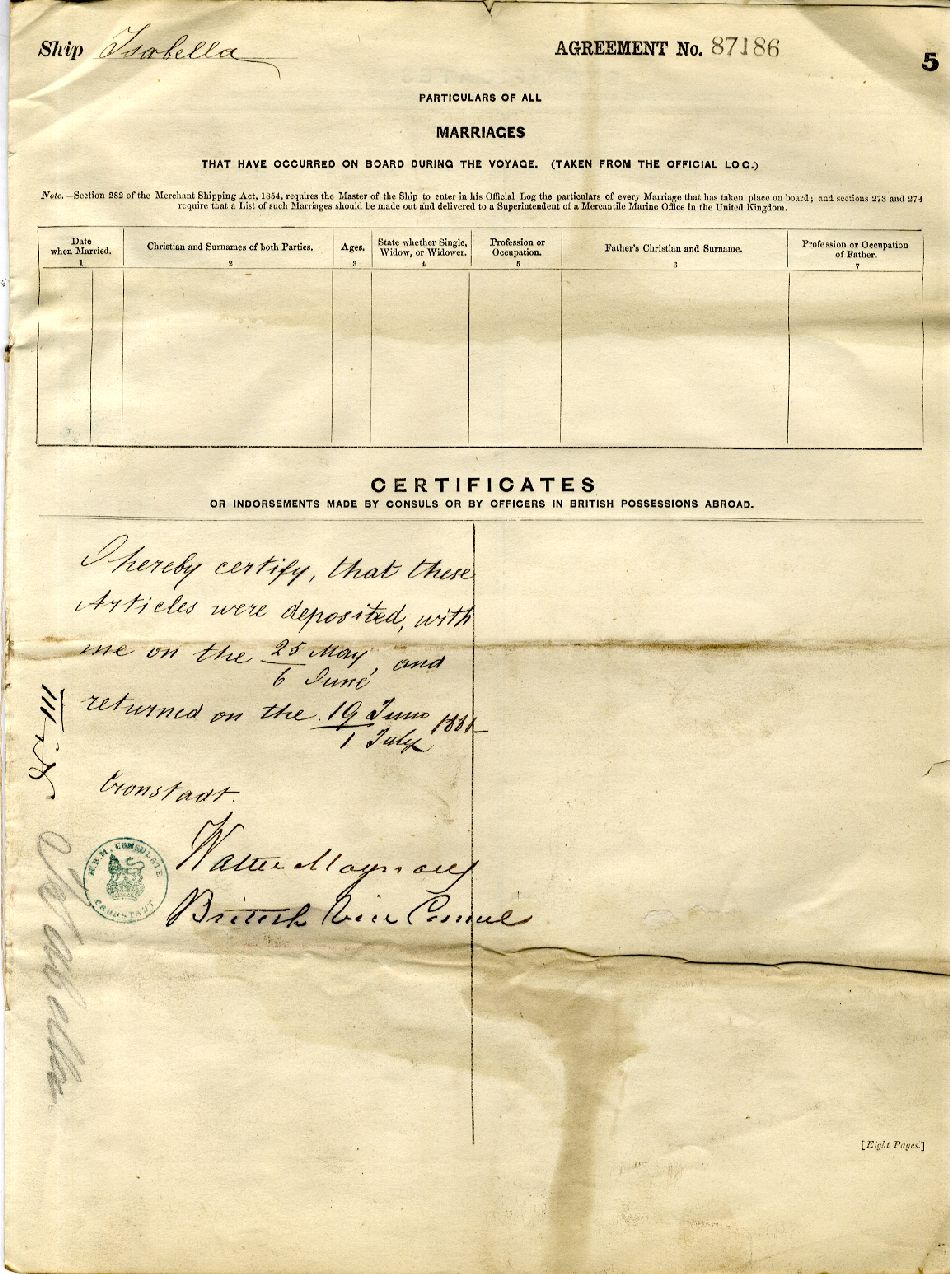 Ship Isabella
AGREEMENT No. 87186
5
PARTICULARS OF ALL
MARRIAGES
THAT HAVE OCCURRED ON BOARD DURING THE VOYAGE. (TAKEN FROM THE OFFICIAL LOG.)
Note.—Section 282 of the Merchant Shipping Act, 1854, requires the Master of the Ship to enter in his Official Log the particulars of every Marriage that has taken place on board; and sections 273 and 274
require that a List of such Marriages should be made out and delivered to a Superintendent of a Mercantile Marine Office in the United Kingdom.
Date when Married. Christian and Surnames of both Parties. Ages. State whether Single, Widow, or Widower. Profession or Occupation. Father's Christian and Surname. Profession or Occupation of Father.
1 2 3 4 5 6 7
CERTIFICATES
OR INDORSEMENTS MADE BY CONSULS OR BY OFFICERS IN BRITISH POSSESSIONS ABROAD.
I hereby certify, that these
Articles were deposited, with
me on the 25 May / 6 June, and
returned on the 19 June / 1 July 1881
Cronstadt.
Walter Maynard
British Vice Consul
H.B.M. CONSULATE
CRONSTADT
Isabella
[Eight Pages.]